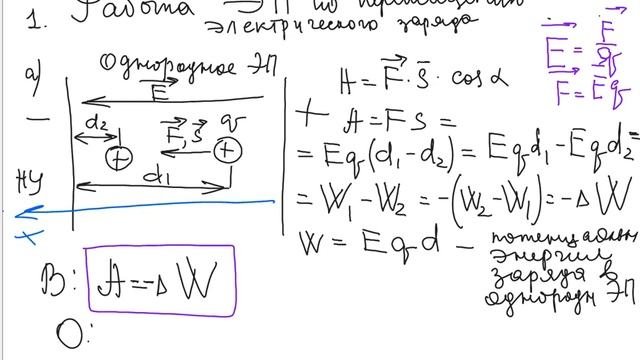 1. Работа ЭП по перемещению
электрического заряда
а) Однородное ЭП
E⃗
— d₂ F⃗, s⃗ q +
+ +
d₁
НУ
x
A = F⃗ · s⃗ · cos α
A = F s =
= E q (d₁ - d₂) = E q d₁ - E q d₂ =
= W₁ - W₂ = -(W₂ - W₁) = -Δ W
W = E q d — потенциальн
энергия
заряда в
однородн ЭП
E⃗ = F⃗/q
F⃗ = E⃗ q
В: A = -Δ W
О: